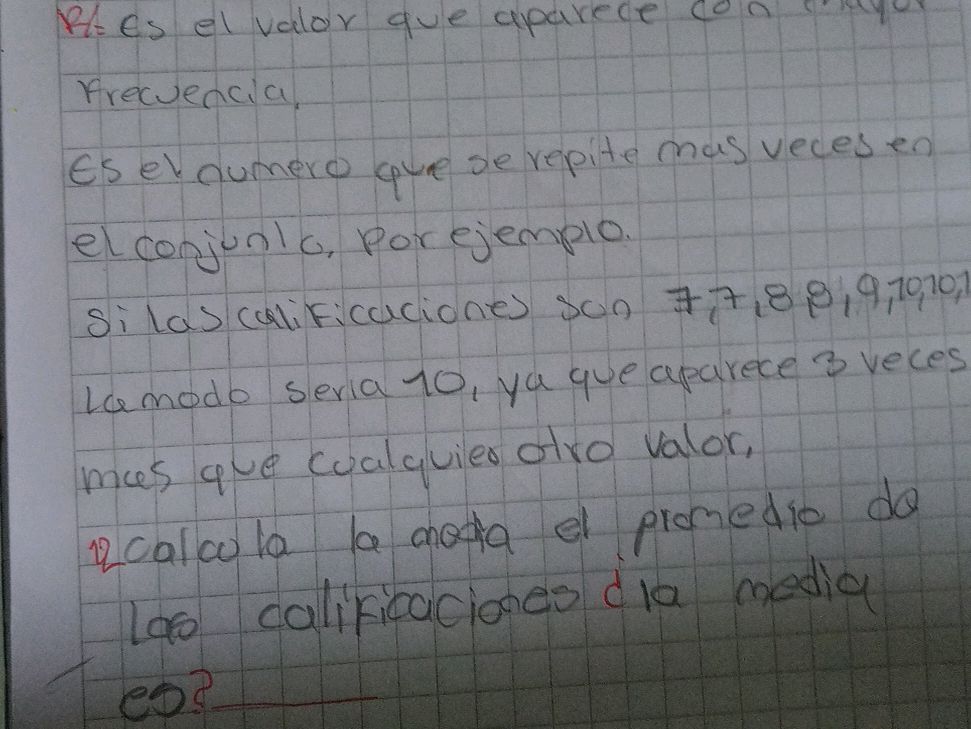 R/= es el valor que aparece con mayor
frecuencia,
Es el numero que se repite mas veces en
el conjunto, Por ejemplo.
si las calificaciones son 7,7,8,8,9,10,10,1
La modo seria 10, ya que aparece 3 veces
mas que cualquier otro valor,
12 calcula la media el promedio de
las calificaciones ¿ la media
es? ______